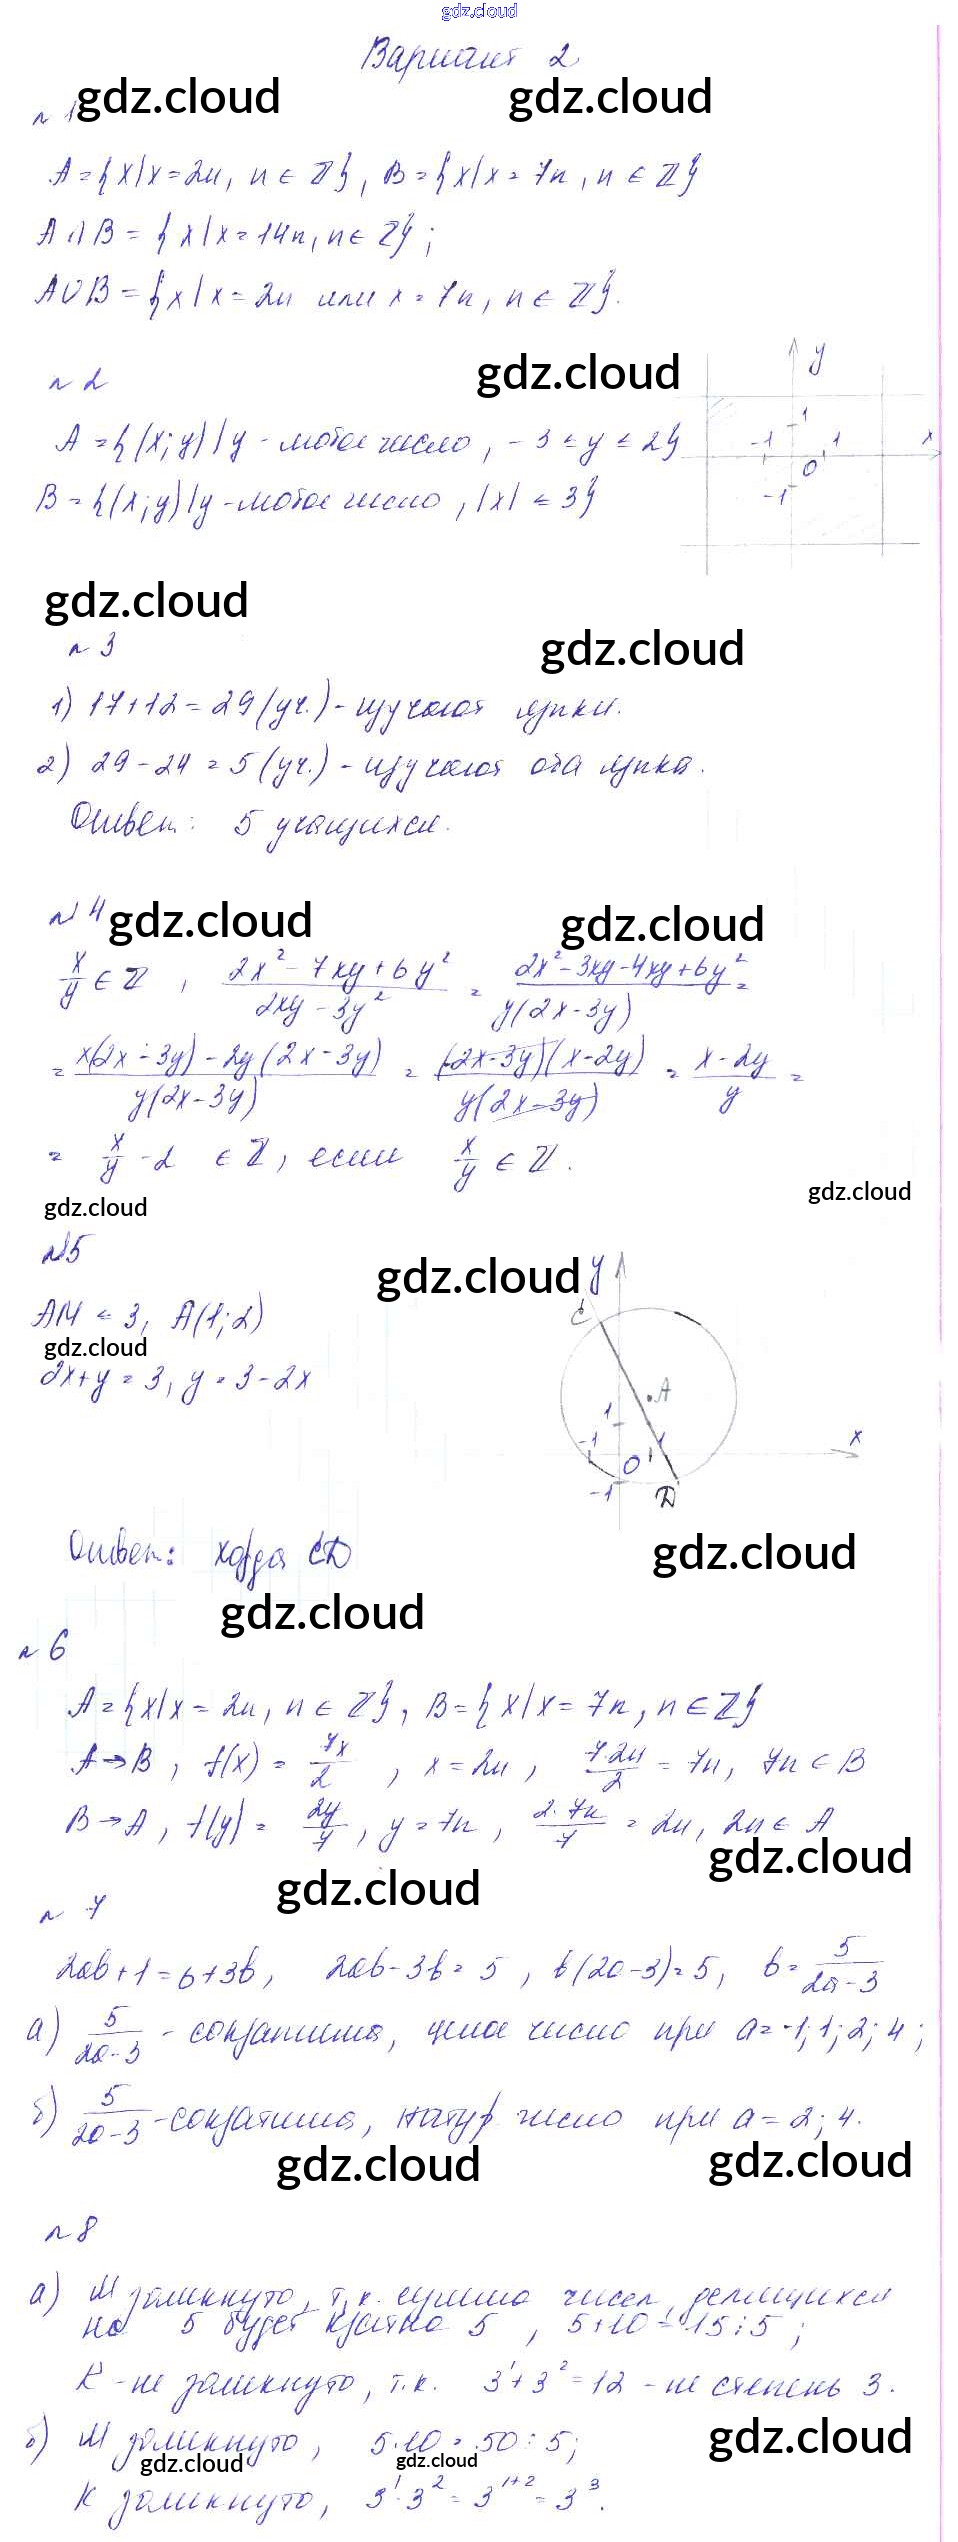 gdz.cloud
Вариант 2
gdz.cloud gdz.cloud
№ 1
A = {x/x = 2n, n ∈ ℤ}, B = {x/x = 7n, n ∈ ℤ}
A∩B = {x/x = 14n, n ∈ ℤ};
A∪B = {x/x = 2n или x = 7n, n ∈ ℤ}.
№ 2 gdz.cloud
A = {(x; y)/y - любое число, -3 ≤ y ≤ 2}
B = {(x; y)/y - любое число, |x| ≤ 3}
y
1
-1 1 x
O
-1
gdz.cloud
№ 3 gdz.cloud
1) 17+12 = 29 (уч.) - изучают языки.
2) 29-24 = 5 (уч.) - изучают оба языка.
Ответ: 5 учащихся.
№ 4 gdz.cloud gdz.cloud
x/y ∈ ℤ, (2x²-7xy+6y²)/(2xy-3y²) = (2x²-3xy-4xy+6y²)/(y(2x-3y)) =
= (x(2x-3y)-2y(2x-3y))/(y(2x-3y)) = ((2x-3y)(x-2y))/(y(2x-3y)) = (x-2y)/y =
= x/y - 2 ∈ ℤ, если x/y ∈ ℤ.
gdz.cloud gdz.cloud
№5
gdz.cloud
AM ≤ 3, A(1; 2)
gdz.cloud
2x+y = 3, y = 3-2x
y
C
A
1
-1 1 x
O
-1 D
Ответ: хорда CD
gdz.cloud
gdz.cloud
№ 6
A = {x/x = 2n, n ∈ ℤ}, B = {x/x = 7n, n ∈ ℤ}
A→B, f(x) = 7x/2, x = 2n, 7·2n/2 = 7n, 7n ∈ B
B→A, f(y) = 2y/7, y = 7n, 2·7n/7 = 2n, 2n ∈ A
gdz.cloud
gdz.cloud
№ 7
2ab+1 = 6+3b, 2ab-3b = 5, b(2a-3) = 5, b = 5/(2a-3)
а) 5/(2a-3) - сократима, целое число при a = -1; 1; 2; 4;
б) 5/(2a-3) - сократима, натур число при a = 2; 4.
gdz.cloud gdz.cloud
№ 8
а) M замкнуто, т.к. сумма чисел, делящихся
на 5 будет кратна 5, 5+10 = 15⋮5;
K - не замкнуто, т.к. 3¹+3² = 12 - не степень 3.
б) M замкнуто, 5·10 = 50⋮5;
gdz.cloud
gdz.cloud gdz.cloud
K замкнуто, 3¹·3² = 3¹⁺² = 3³.